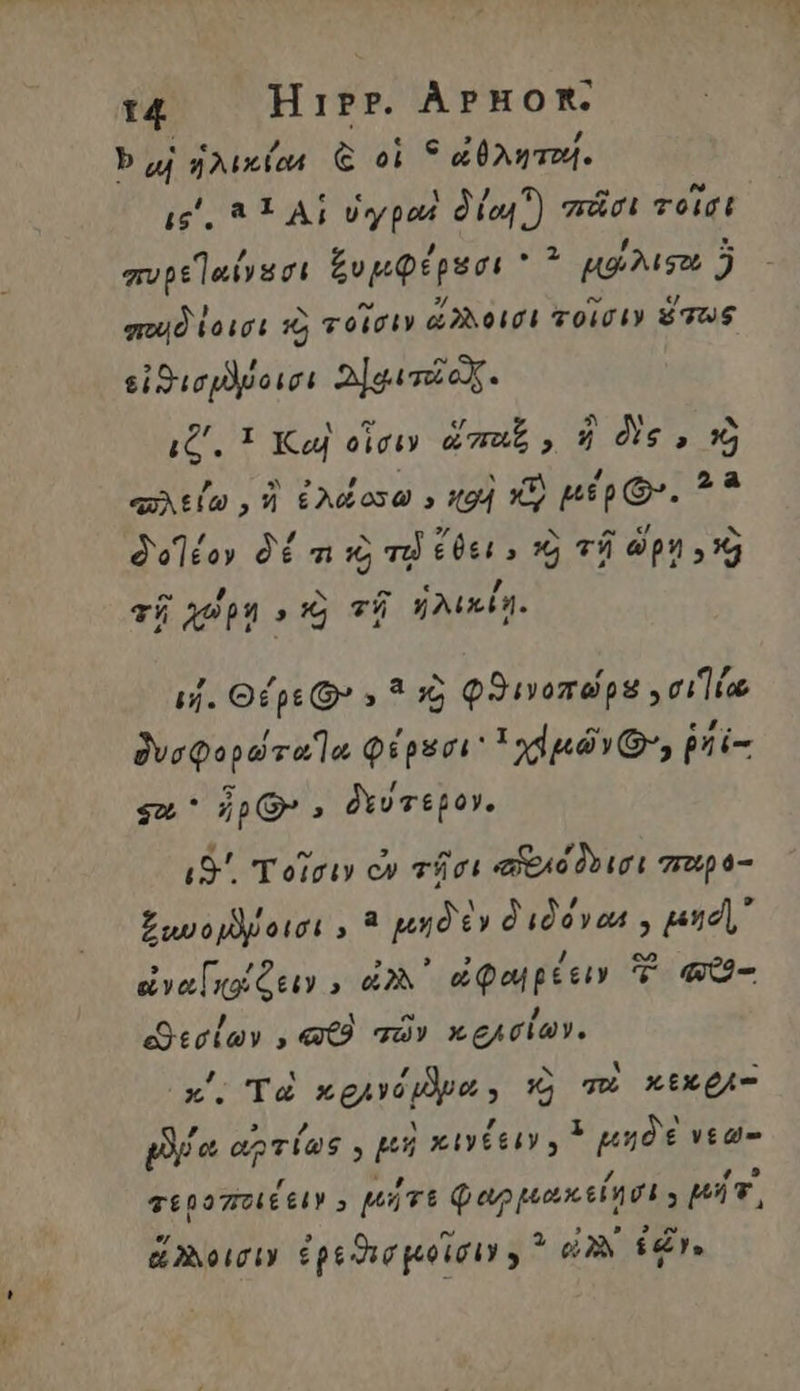 14 HIPP. APHOR.
b αἱ ἡλικίαι καὶ οἱ c ἀθληταί.
ις΄. a 1 Αἱ ὑγραὶ δίαιται πᾶσι τοῖσι
πυρεταίνουσι ξυμφέρουσι · 2 μάλιστα δὲ
παιδίοισι καὶ τοῖσιν ἄλλοισι τοῖσιν οὕτως
εἰθισμένοισι διαιτᾶσθαι.
ιζ΄. 1 Καὶ οἷσιν ἅπαξ, ἢ δὶς, καὶ
πλείω, ἢ ἐλάσσω, καὶ κατὰ μέρος. 2 a
δοτέον δέ τι καὶ τῷ ἔθει, καὶ τῇ ὥρῃ, καὶ
τῇ χώρῃ, καὶ τῇ ἡλικίῃ.
ιή. Θέρεος, a καὶ φθινοπώρου, σιτία
δυσφορώτατα φέρουσι· 1 χειμῶνος, ῥηΐ-
στα · ἦρος, δεύτερον.
ιθ΄. Τοῖσιν ἐν τῇσι περιόδοισι παρο-
ξυνομένοισι, a μηδὲν διδόναι, μηδ'
ἀναγκάζειν, ἀλλ' ἀφαιρέειν τῶν προ-
σθεσίων, πρὸ τῶν κρισίων.
κ΄. Τὰ κρινόμενα, καὶ τὰ κεκρι-
μένα ἀρτίως, μὴ κινέειν, 1 μηδὲ νεω-
τεροποιέειν, μήτε φαρμακείῃσι, μήτ'
ἄλλοισιν ἐρεθισμοῖσιν, 2 ἀλλ' ἐᾷν.